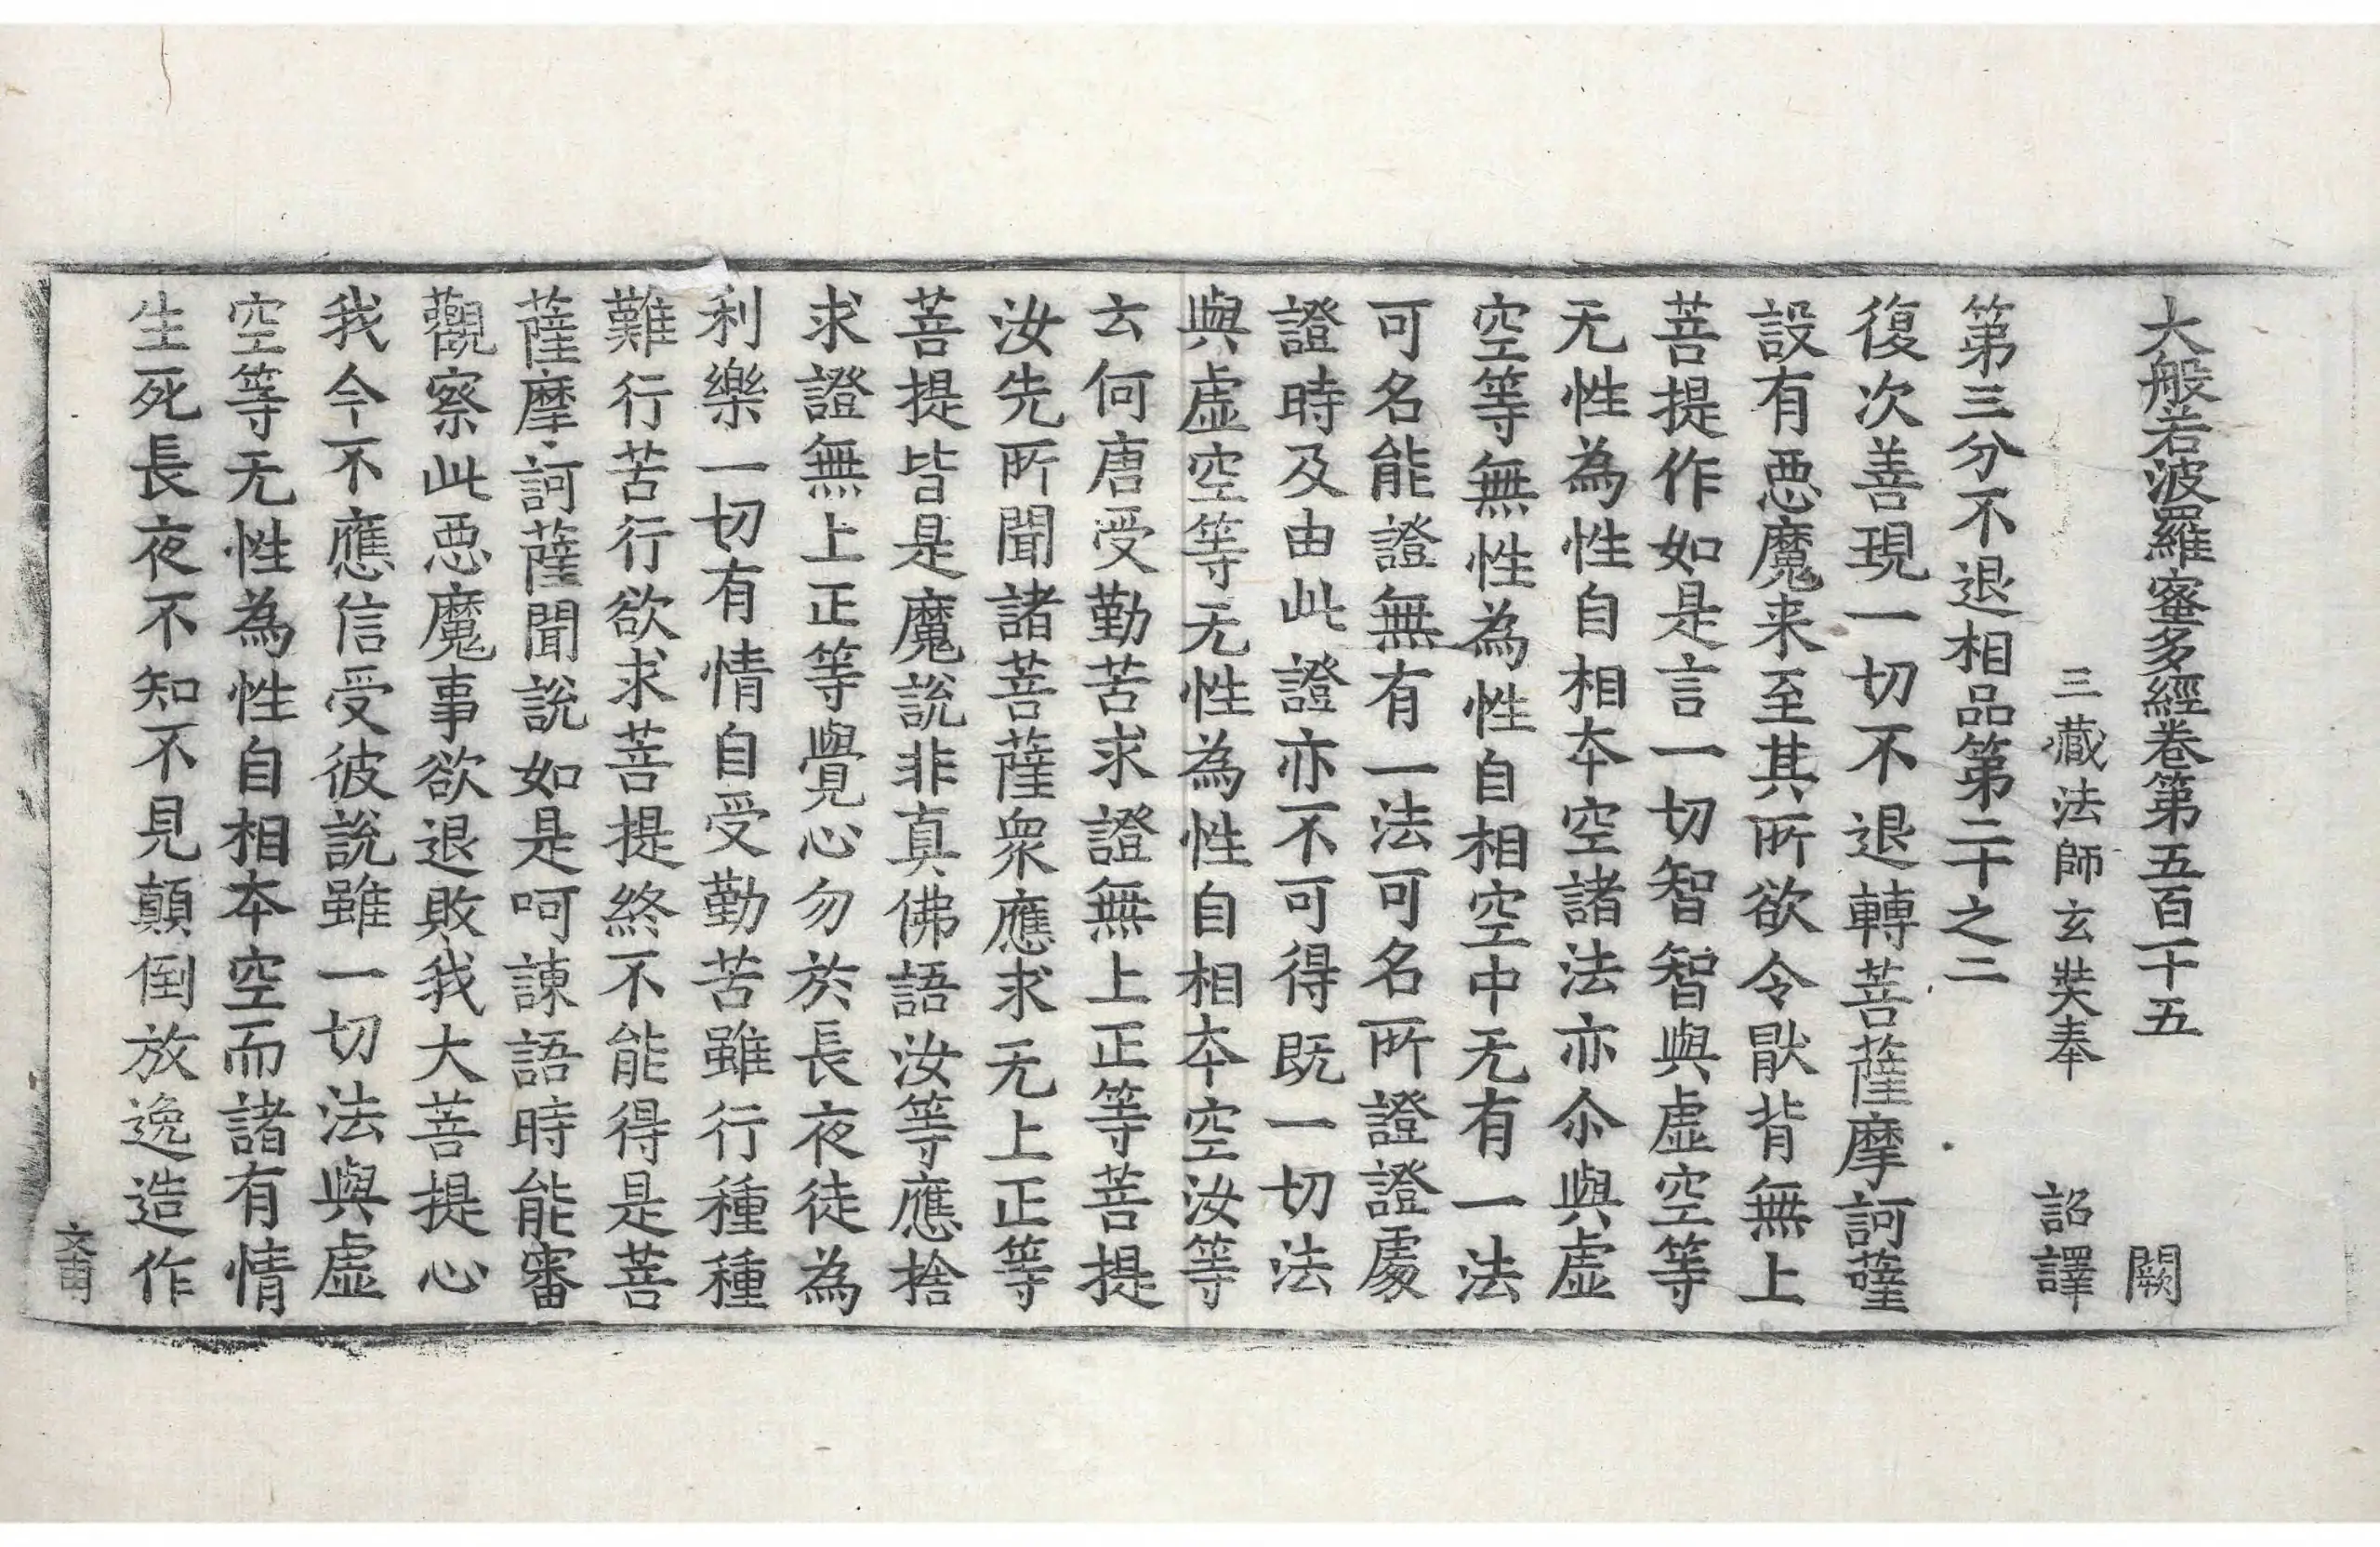 大般若波羅蜜多經卷第五百十五 闕
三藏法師玄奘奉 詔譯
第三分不退相品第二十之二
復次善現一切不退轉菩薩摩訶薩
設有惡魔来至其所欲令猒背無上
菩提作如是言一切智智與虛空等
无性為性自相夲空諸法亦尒與虛
空等無性為性自相空中无有一法
可名能證無有一法可名所證證處
證時及由此證亦不可得既一切法
與虛空等无性為性自相夲空汝等
云何唐受勤苦求證無上正等菩提
汝先所聞諸菩薩衆應求无上正等
菩提皆是魔說非真佛語汝等應捨
求證無上正等覺心勿於長夜徒為
利樂一切有情自受勤苦雖行種種
難行苦行欲求菩提終不能得是菩
薩摩訶薩聞說如是呵諫語時能審
觀察此惡魔事欲退敗我大菩提心
我今不應信受彼說雖一切法與虛
空等无性為性自相夲空而諸有情
生死長夜不知不見顛倒放逸造作
文甫